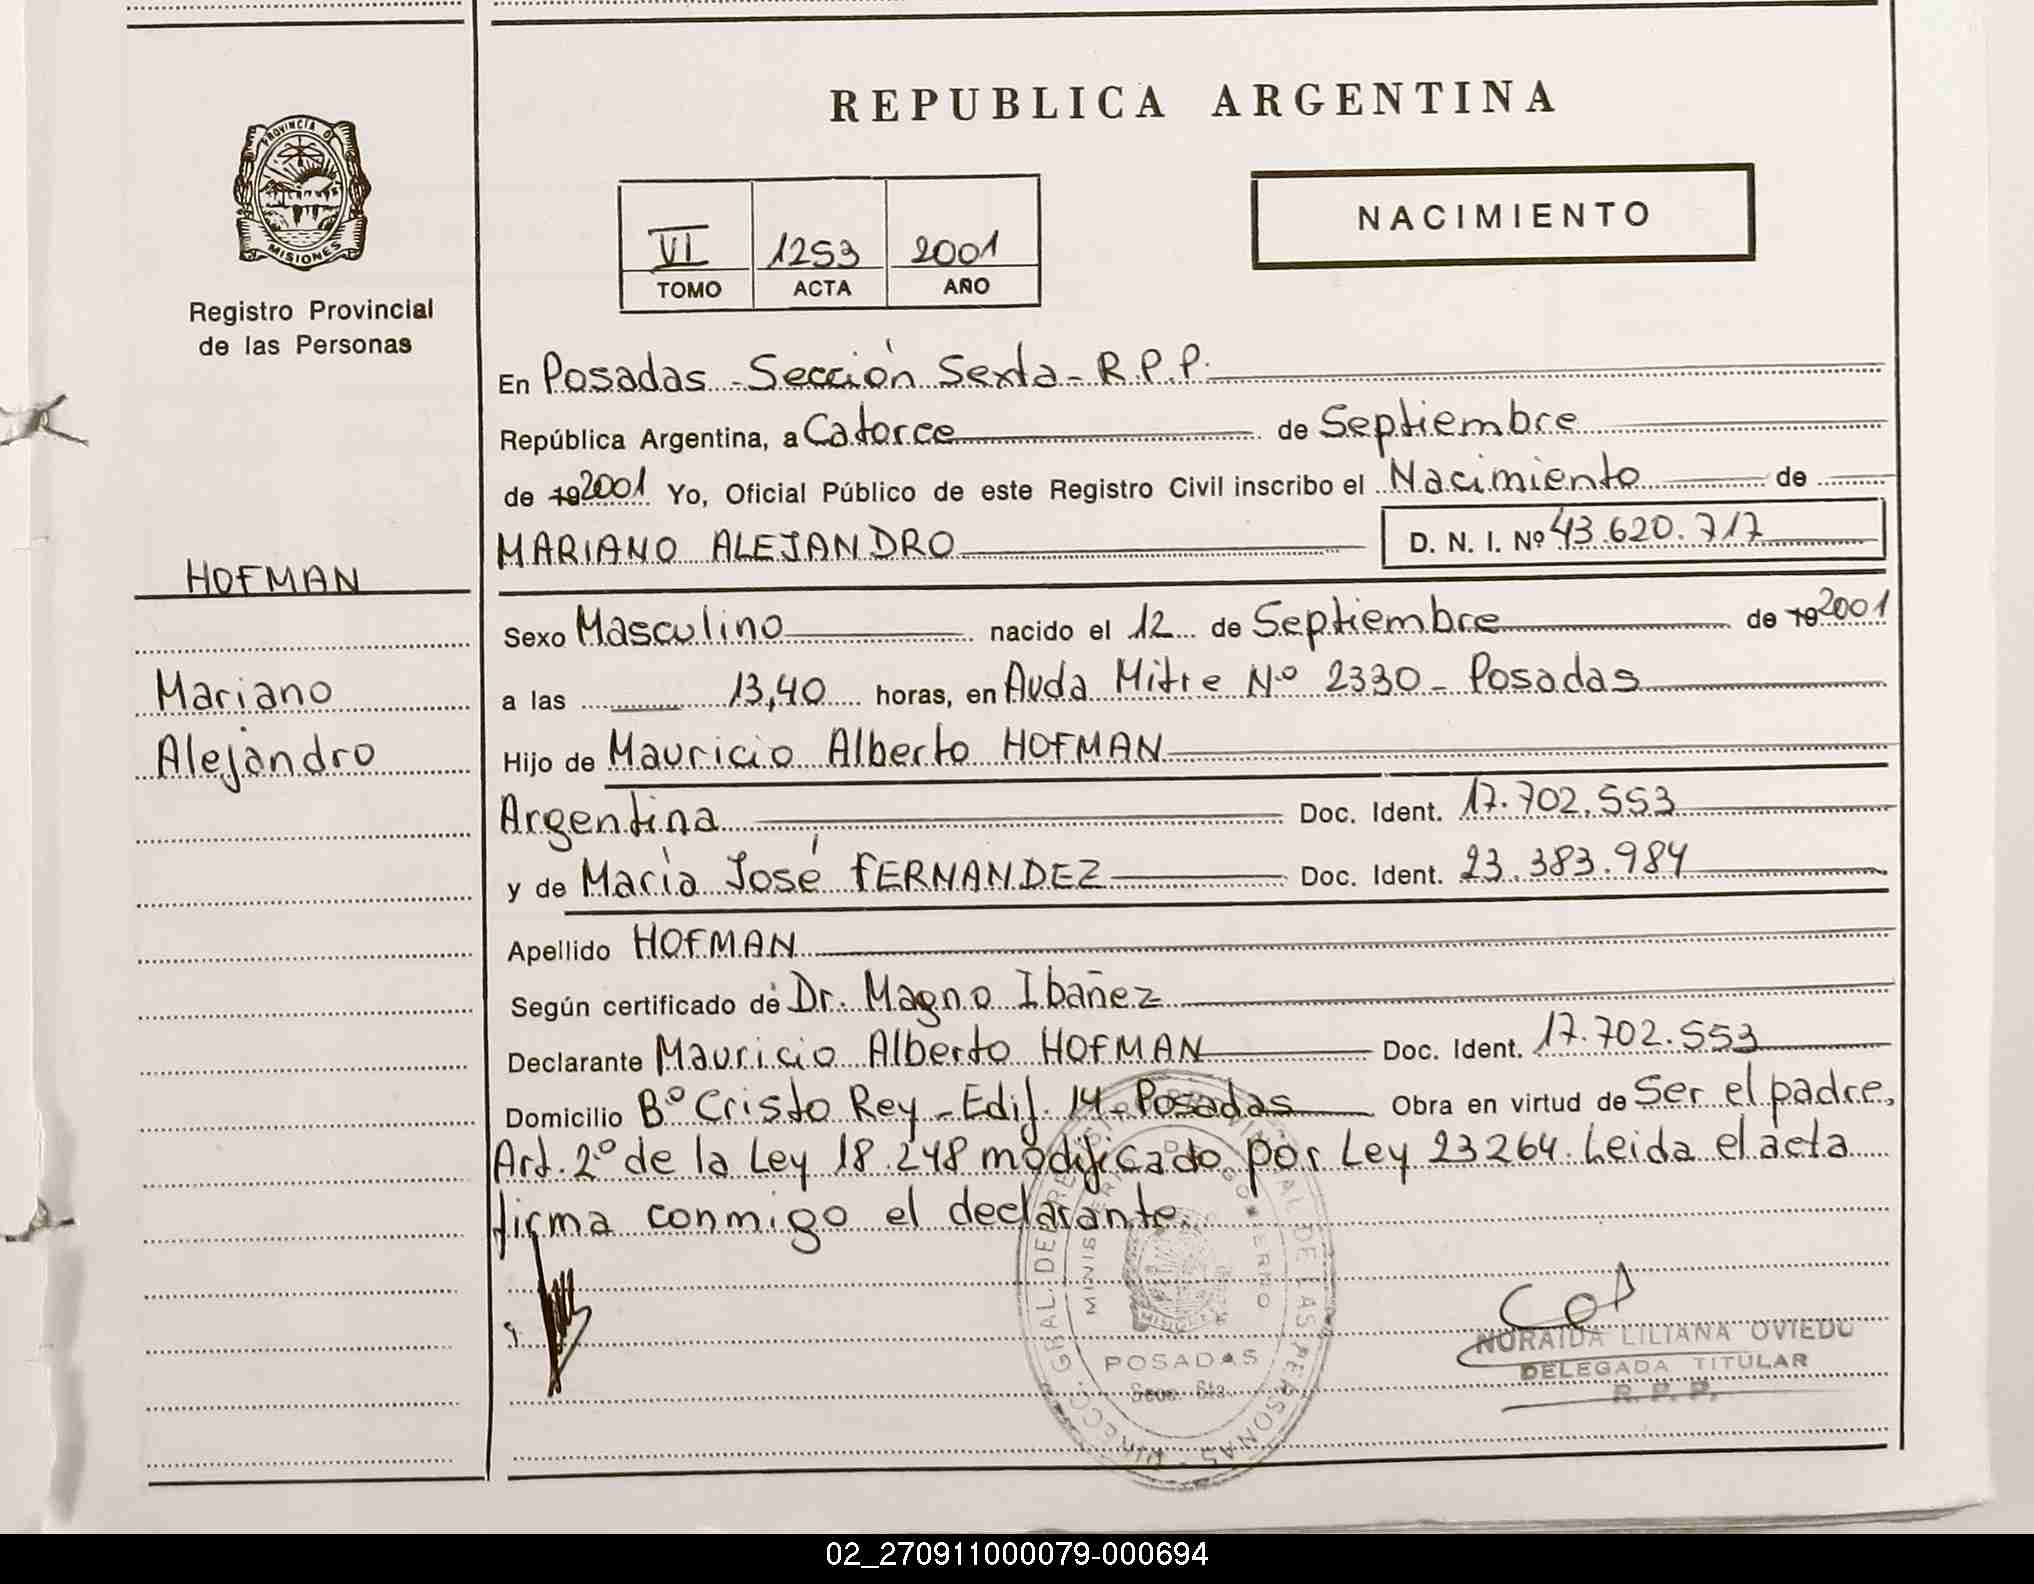 REPUBLICA ARGENTINA
PROVINCIA D
MISIONES
Registro Provincial
de las Personas
NACIMIENTO
VI 1253 2001
TOMO ACTA AÑO
En Posadas - Sección Sexta - R.P.P.
República Argentina, a Catorce de Septiembre
de 19 2001 Yo, Oficial Público de este Registro Civil inscribo el Nacimiento de
MARIANO ALEJANDRO D. N. I. Nº 43.620.717
HOFMAN
Mariano
Alejandro
Sexo Masculino nacido el 12 de Septiembre de 19 2001
a las 13,40 horas, en Avda Mitre Nº 2330 - Posadas
Hijo de Mauricio Alberto HOFMAN
Argentina Doc. Ident. 17.702.553
y de María José FERNANDEZ Doc. Ident. 23.383.984
Apellido HOFMAN
Según certificado de Dr. Magno Ibañez
Declarante Mauricio Alberto HOFMAN Doc. Ident. 17.702.553
Domicilio Bº Cristo Rey - Edif. 14 - Posadas Obra en virtud de Ser el padre,
Art. 2º de la Ley 18.248 modificado por Ley 23264. Leida el acta
firma conmigo el declarante.
DIRECC. GRAL. DEL REGISTRO PROVINCIAL DE LAS PERSONAS
MINISTERIO DE GOBIERNO
MISIONES
POSADAS
Secc. 6ta.
NORAIDA LILIANA OVIEDO
DELEGADA TITULAR
R. P. P.
02_270911000079-000694